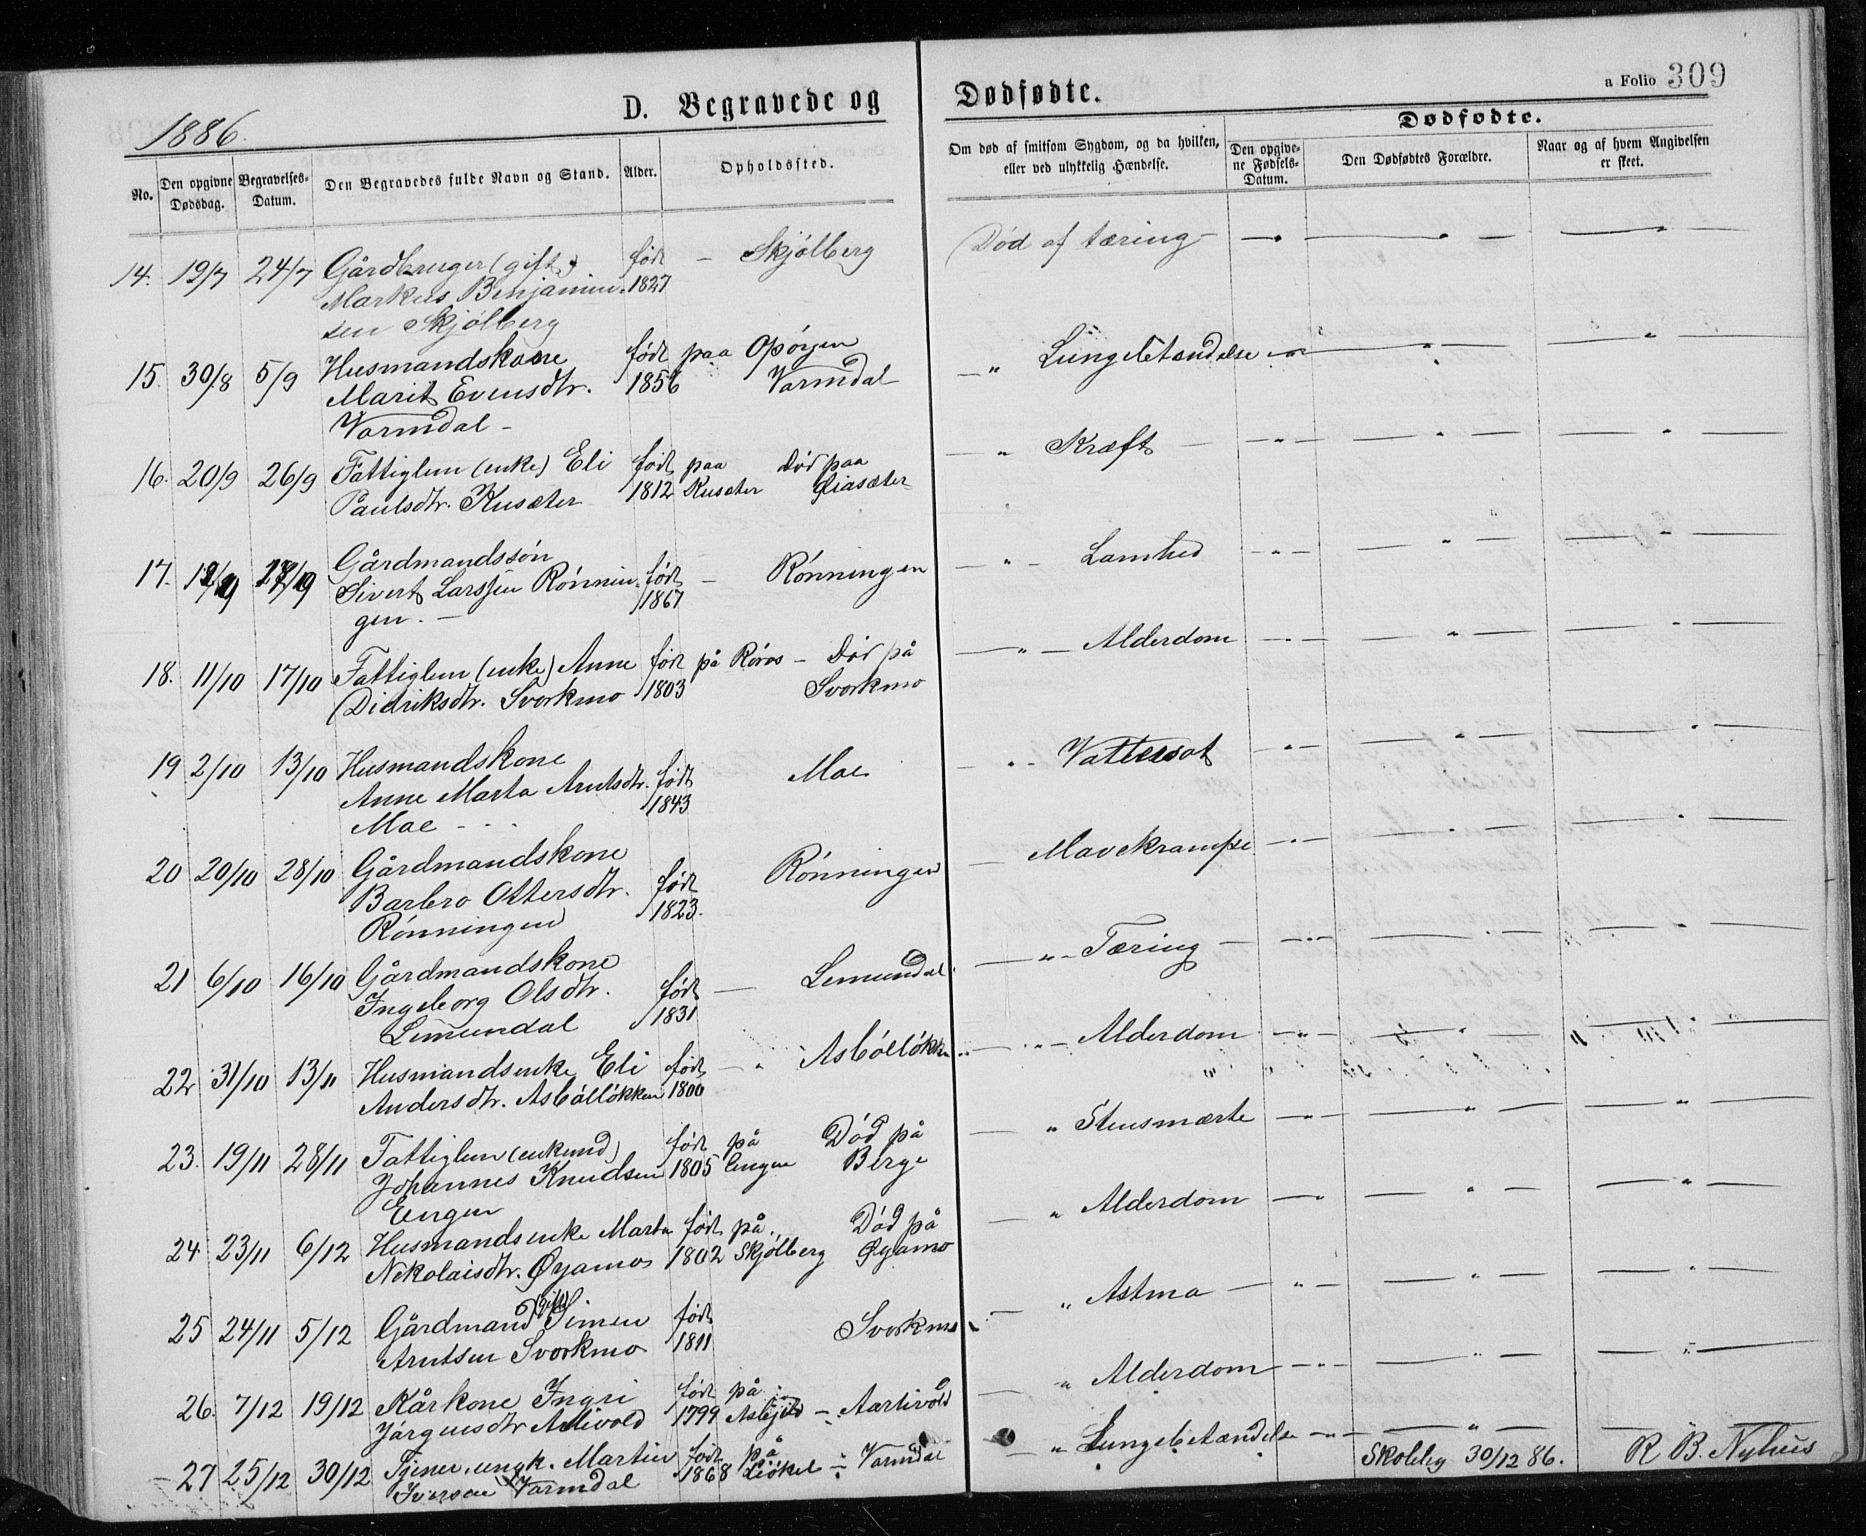 1886.
D. Begravede og Dødfødte.
a Folio 309
No.
Den opgivne Dødsdag.
Begravelses-Datum.
Den Begravedes fulde Navn og Stand.
Alder.
Opholdssted.
Om død af smitsom Sygdom, og da hvilken, eller ved ulykkelig Hændelse.
Dødfødte.
Den opgivne Fødsels-Datum.
Den Dødfødtes Forældre.
Naar og af hvem Angivelsen er skeet.
14. 19/7 24/7 Gårdbruger (gift) født — Skjølberg Død af tæring
Markus Benjamin- 1827
sen Skjølberg
15. 30/8 5/9 Husmandskone født paa Opøyen " Lungebetændelse
Marit Evensdtr. 1856 Varmdal
Varmdal
16. 20/9 26/9 Fattiglem (enke) Eli født paa Død paa " Kræft
Paulsdtr. Kusæter 1812 Kusæter
17. Gårdmandssøn
Sivert Larssen Rønnin- født — Rønningen " Lamhed
gen. 1867
18. 11/10 17/10 Fattiglem (enke) Anne født på Røros — Død på " Alderdom
Didriksdtr. Svorkmo 1803 Svorkmo
19 2/10 13/10 Husmandskone Moe " Vattersot
Anne Marta Arntsdtr. født
Moe 1843
20 20/10 28/10 Gårdmandskone Rønningen Mavekrampe
Barbro Ottersdtr. født
Rønningen 1823.
21 6/10 16/10 Gårdmandskone Lemundal " Tæring
Ingeborg Olsdtr. født
Lemundal 1831
22 31/10 13/11 Husmandsenke Eli født — " Asbølløkken " Alderdom
Andersdtr. Asbølløkken 1800
23. 19/11 28/11 Fattiglem (enkemd) født på Død på " Stensmærte
Johannes Knudsen 1805 Engen Berge
Engen
24 23/11 6/12 Husmandsenke Marta født på Død på " Alderdom
Nekolaisdtr. Øyamo 1802 Skjølberg Øyamo
25 24/11 5/12 Gårdmand (gift) Simen født Svorkmo " Astma
Arntsen Svorkmo 1811
26. 7/12 19/12 Kårkone Ingri født på " Alderdom
Jørgensdtr 1799 — Aarlivold
27 25/12 30/12 Tjener, ungk. Martin født på — Varmdal " Lungebetændelse
Iversen Varmdal 1868
Skolbg 30/12 86. R B. Nyhus